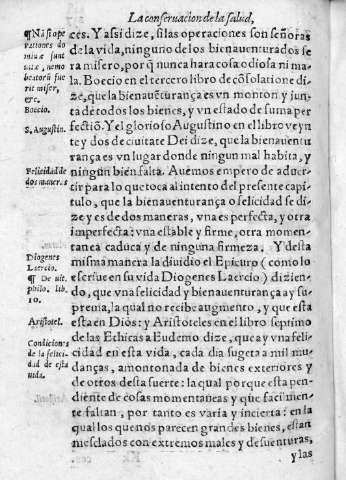 La conseruacion de la salud,
¶ Nã si ope
rationes do
minæ sunt
vitæ, nemo
beatorũ fue
rit miser,
&c.
Boecio.
S. Augustin.
Felicidad de
dos maneras
Diogenes
Laercio.
¶ De vit.
philo. lib.
10.
Aristotel.
Condiciones
de la felici
dad de esta
vida.
ces. Y assi dize, si las operaciones son señoras
de la vida, ninguno de los bienauenturados se
ra misero, por q̃ nunca hara cosa odiosa ni ma-
la. Boecio en el tercero libro de cõsolatione di-
ze, que la bienauẽturança es vn monton y jun-
ta de todos los bienes, y vn estado de suma per
fectiõ. Y el glorioso Augustino en el libro veyn
te y dos de ciuitate Dei dize, que la bienauentu
rança es vn lugar donde ningun mal habita, y
ningun bien falta. Auemos empero de aduer-
tir para lo que toca al intento del presente capi-
tulo, que la bienauenturança o felicidad se di-
ze y es de dos maneras, vna es perfecta, y otra
imperfecta: vna estable y firme, otra momen-
tanea caduca y de ninguna firmeza. Y desta
misma manera la diuidio el Epicuro (como lo
escriue en su vida Diogenes Laercio) dizien-
do, que vna felicidad y bienauenturança ay su-
prema, la qual no recibe augmento, y que esta
esta en Dios: y Aristoteles en el libro septimo
de las Ethicas a Eudemo dize, que ay vna feli-
cidad en esta vida, cada dia sugeta a mil mu-
danças, amontonada de bienes exteriores y
de otros desta suerte: la qual porque esta pen-
diente de cosas momentaneas y que facilmen-
te faltan, por tanto es varia y incierta: en la
qual los que nos parecen grandes bienes, estan
mesclados con extremos males y desuenturas,
y las